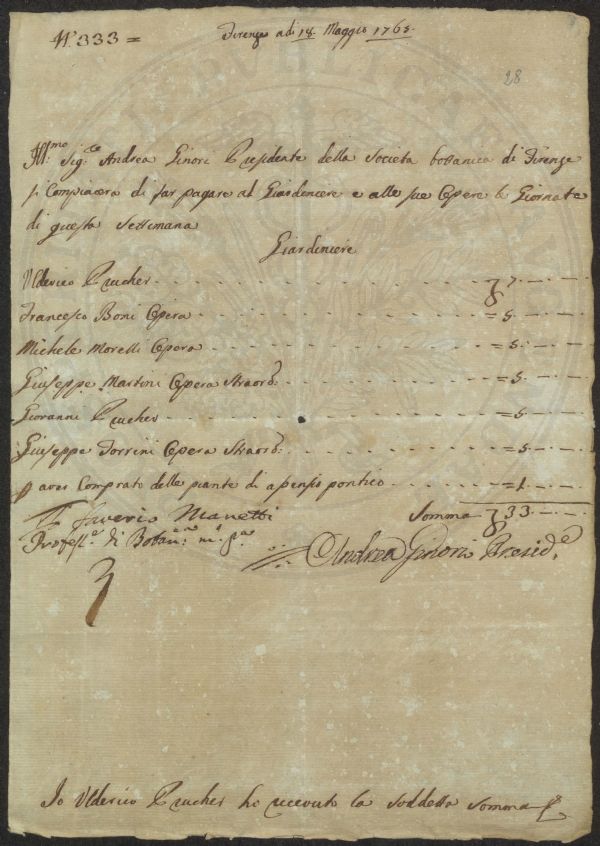 N.° 333 =
Firenze adi 18. Maggio 1765.
28
Ill:mo Sig:re Andrea Ginori Presidente della Societa bottanica di Firenze
si Compiacera di far pagare al Giardiniere e alle sue Opere le Giornate
di questa Settimana
Giardiniere
Ulderico Prucher 7
Francesco Boni Opera = 5
Michele Morelli Opera = 5
Giuseppe Martini Opera Straord:a = 5
Giovanni Prucher = 5
Giuseppe Torrini Opera Straord:a = 5
p aver Comprato delle piante di apensio pontico = 1
Saverio Manetti
Somma 33
Profess:e di Botan:ca m:o p:a
Andrea Ginori Presid:e
Io Ulderico Prucher ho ricevuto la suddetta Somma